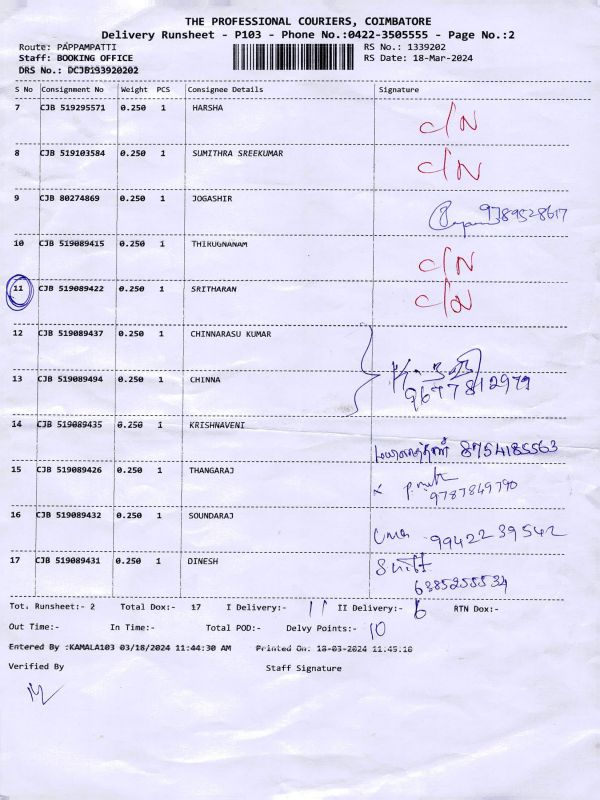 THE PROFESSIONAL COURIERS, COIMBATORE
Delivery Runsheet - P103 - Phone No.:0422-3505555 - Page No.:2
Route: PAPPAMPATTI RS No.: 1339202
Staff: BOOKING OFFICE RS Date: 18-Mar-2024
DRS No.: DCJB193920202
S No Consignment No Weight PCS Consignee Details Signature
7 CJB 519295571 0.250 1 HARSHA C/N
8 CJB 519103584 0.250 1 SUMITHRA SREEKUMAR C/N
9 CJB 80274869 0.250 1 JOGASHIR 9789528617
10 CJB 519089415 0.250 1 THIRUGNANAM C/N
11 CJB 519089422 0.250 1 SRITHARAN C/N
12 CJB 519089437 0.250 1 CHINNARASU KUMAR
13 CJB 519089494 0.250 1 CHINNA 9677812979
14 CJB 519089435 0.250 1 KRISHNAVENI 8754185563
15 CJB 519089426 0.250 1 THANGARAJ 9787849790
16 CJB 519089432 0.250 1 SOUNDARAJ Uma 9942239542
17 CJB 519089431 0.250 1 DINESH 6385255534
Tot. Runsheet:- 2 Total Dox:- 17 I Delivery:- 11 II Delivery:- 6 RTN Dox:-
Out Time:- In Time:- Total POD:- Delvy Points:- 10
Entered By :KAMALA103 03/18/2024 11:44:30 AM Printed On: 18-03-2024 11.45.16
Verified By Staff Signature